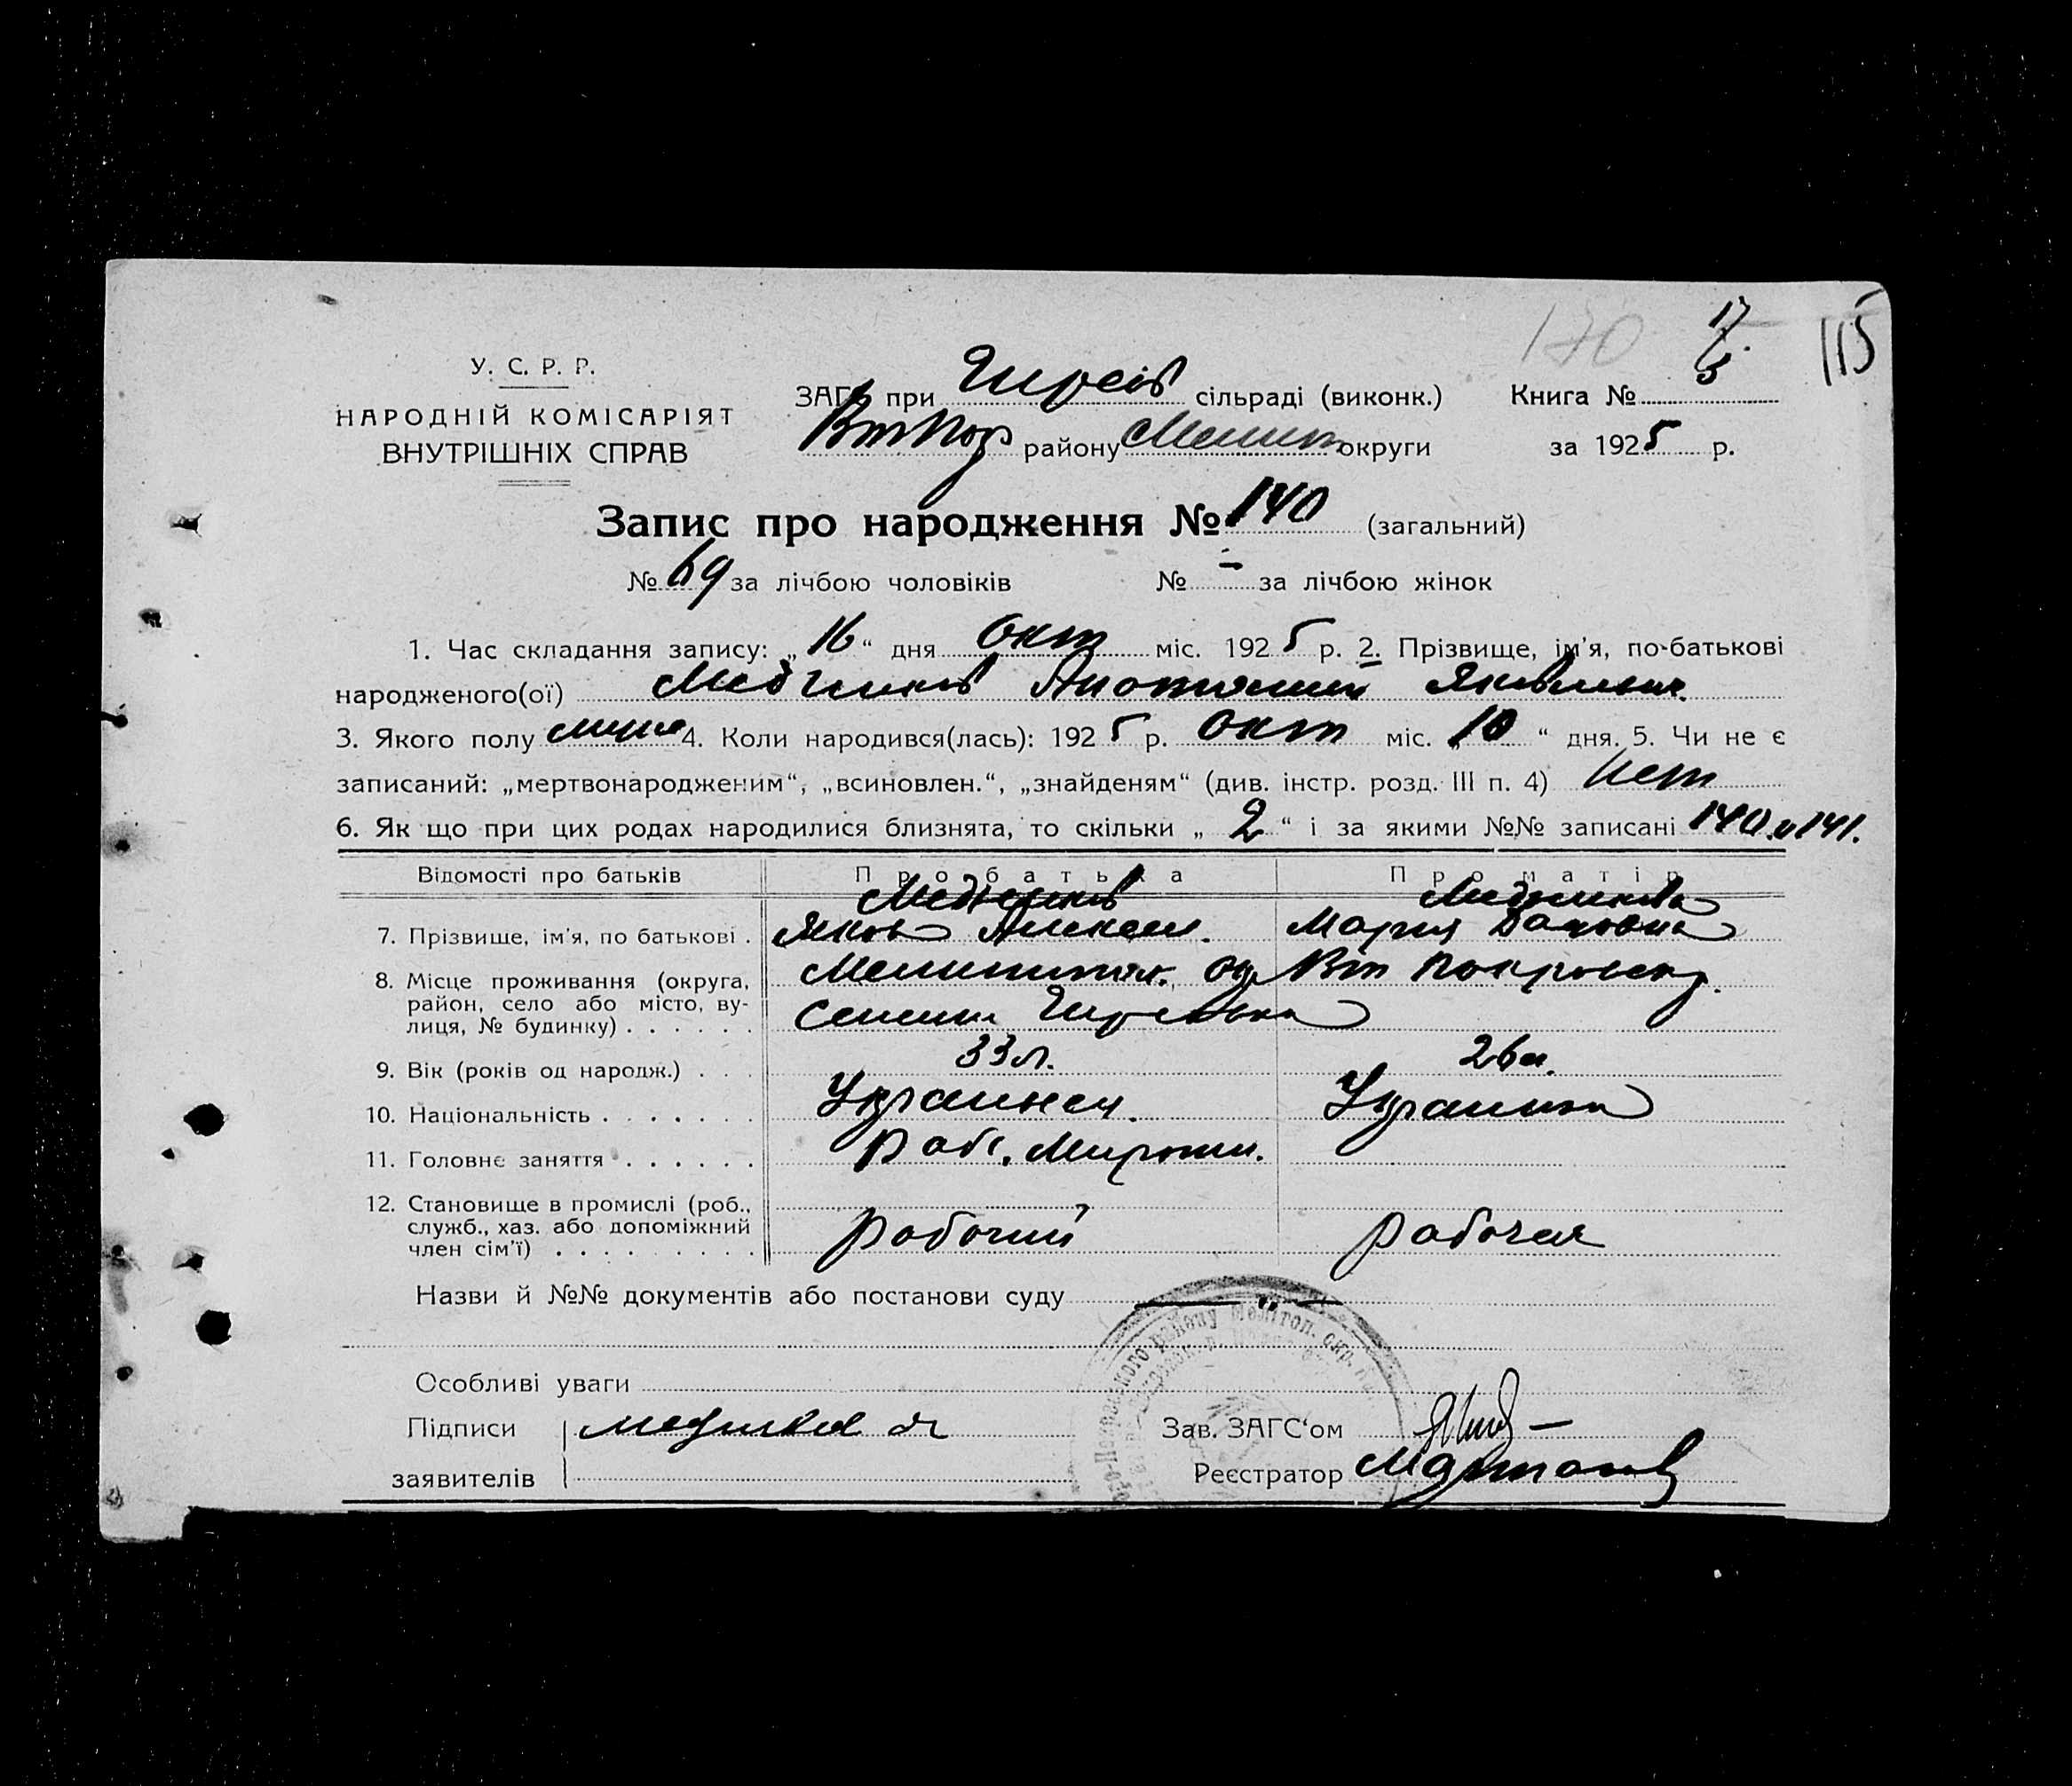 170 17 115
У. С. Р. Р.
НАРОДНІЙ КОМІСАРІЯТ
ВНУТРІШНІХ СПРАВ
ЗАГС при сільраді (виконк.) Книга № 3
ВтПокр району Мелит округи за 1925 р.
Запис про народження № 140 (загальний)
№ 69 за лічбою чоловіків № - за лічбою жінок
1. Час складання запису: „16“ дня Окт міс. 1925 р. 2. Прізвище, ім'я, по-батькові
народженого(ої) Медников Анатолий Яковлевич
3. Якого полу муж 4. Коли народився(лась): 1925 р. Окт міс. „10“ дня. 5. Чи не є
записаний: „мертвонародженим“, „всиновлен.“, „знайденям“ (див. інстр. розд. III п. 4) Нет
6. Як що при цих родах народилися близнята, то скільки „2“ і за якими №№ записані 140 и 141.
Відомості про батьків Про батька Про матір
Медников Медникова
7. Прізвище, ім'я, по батькові . Яков Алексеев. Мария
8. Місце проживання (округа, Мелитопол. Ок Вт Покровск р.
район, село або місто, ву-
лиця, № будинку) . . . . . . Селение
9. Вік (років од народж.) . . . 33 л. 26 л.
10. Національність . . . . . . . Украинец. Украинка
11. Головнє заняття . . . . . . Раб. Мирошн.
12. Становище в промислі (роб.,
служб., хаз. або допоміжний
член сім'ї) . . . . . . . . . Рабочий Рабочая
Назви й №№ документів або постанови суду — „ —
Особливі уваги
Підписи Медников Зав. ЗАГС'ом
заявителів Реєстратор